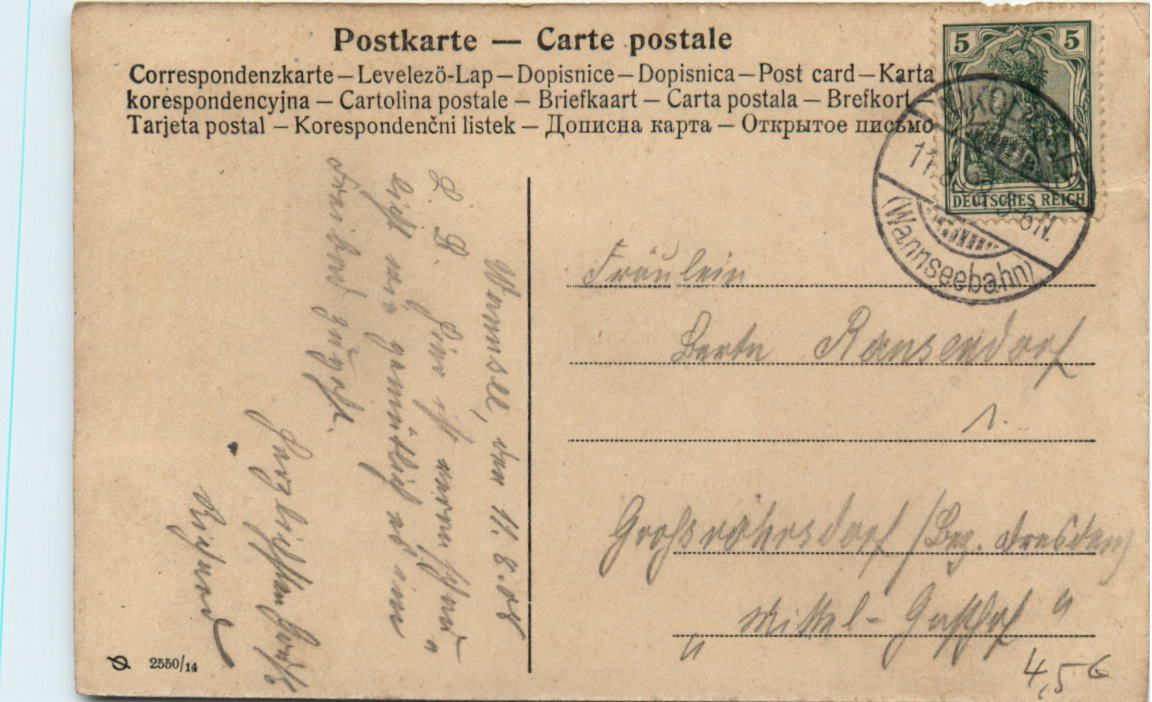 Postkarte — Carte postale
Correspondenzkarte – Levelezö-Lap – Dopisnice – Dopisnica – Post card – Karta
korespondencyjna – Cartolina postale – Briefkaart – Carta postala – Brefkort
Tarjeta postal – Korespondenčni listek – Дописна карта – Открытое письмо
5 5
DEUTSCHES REICH
(Wannseebahn)
Wannsee, den 11.8.08
L. B. Hier ist
gemütlich
Freibad
Herzlichsten Gruß
Richard
Fräulein
Ransendorf
Grossröhrsdorf (Bez. Dresden)
„ Mittel-Gasthof “
2550/14
4,5 €